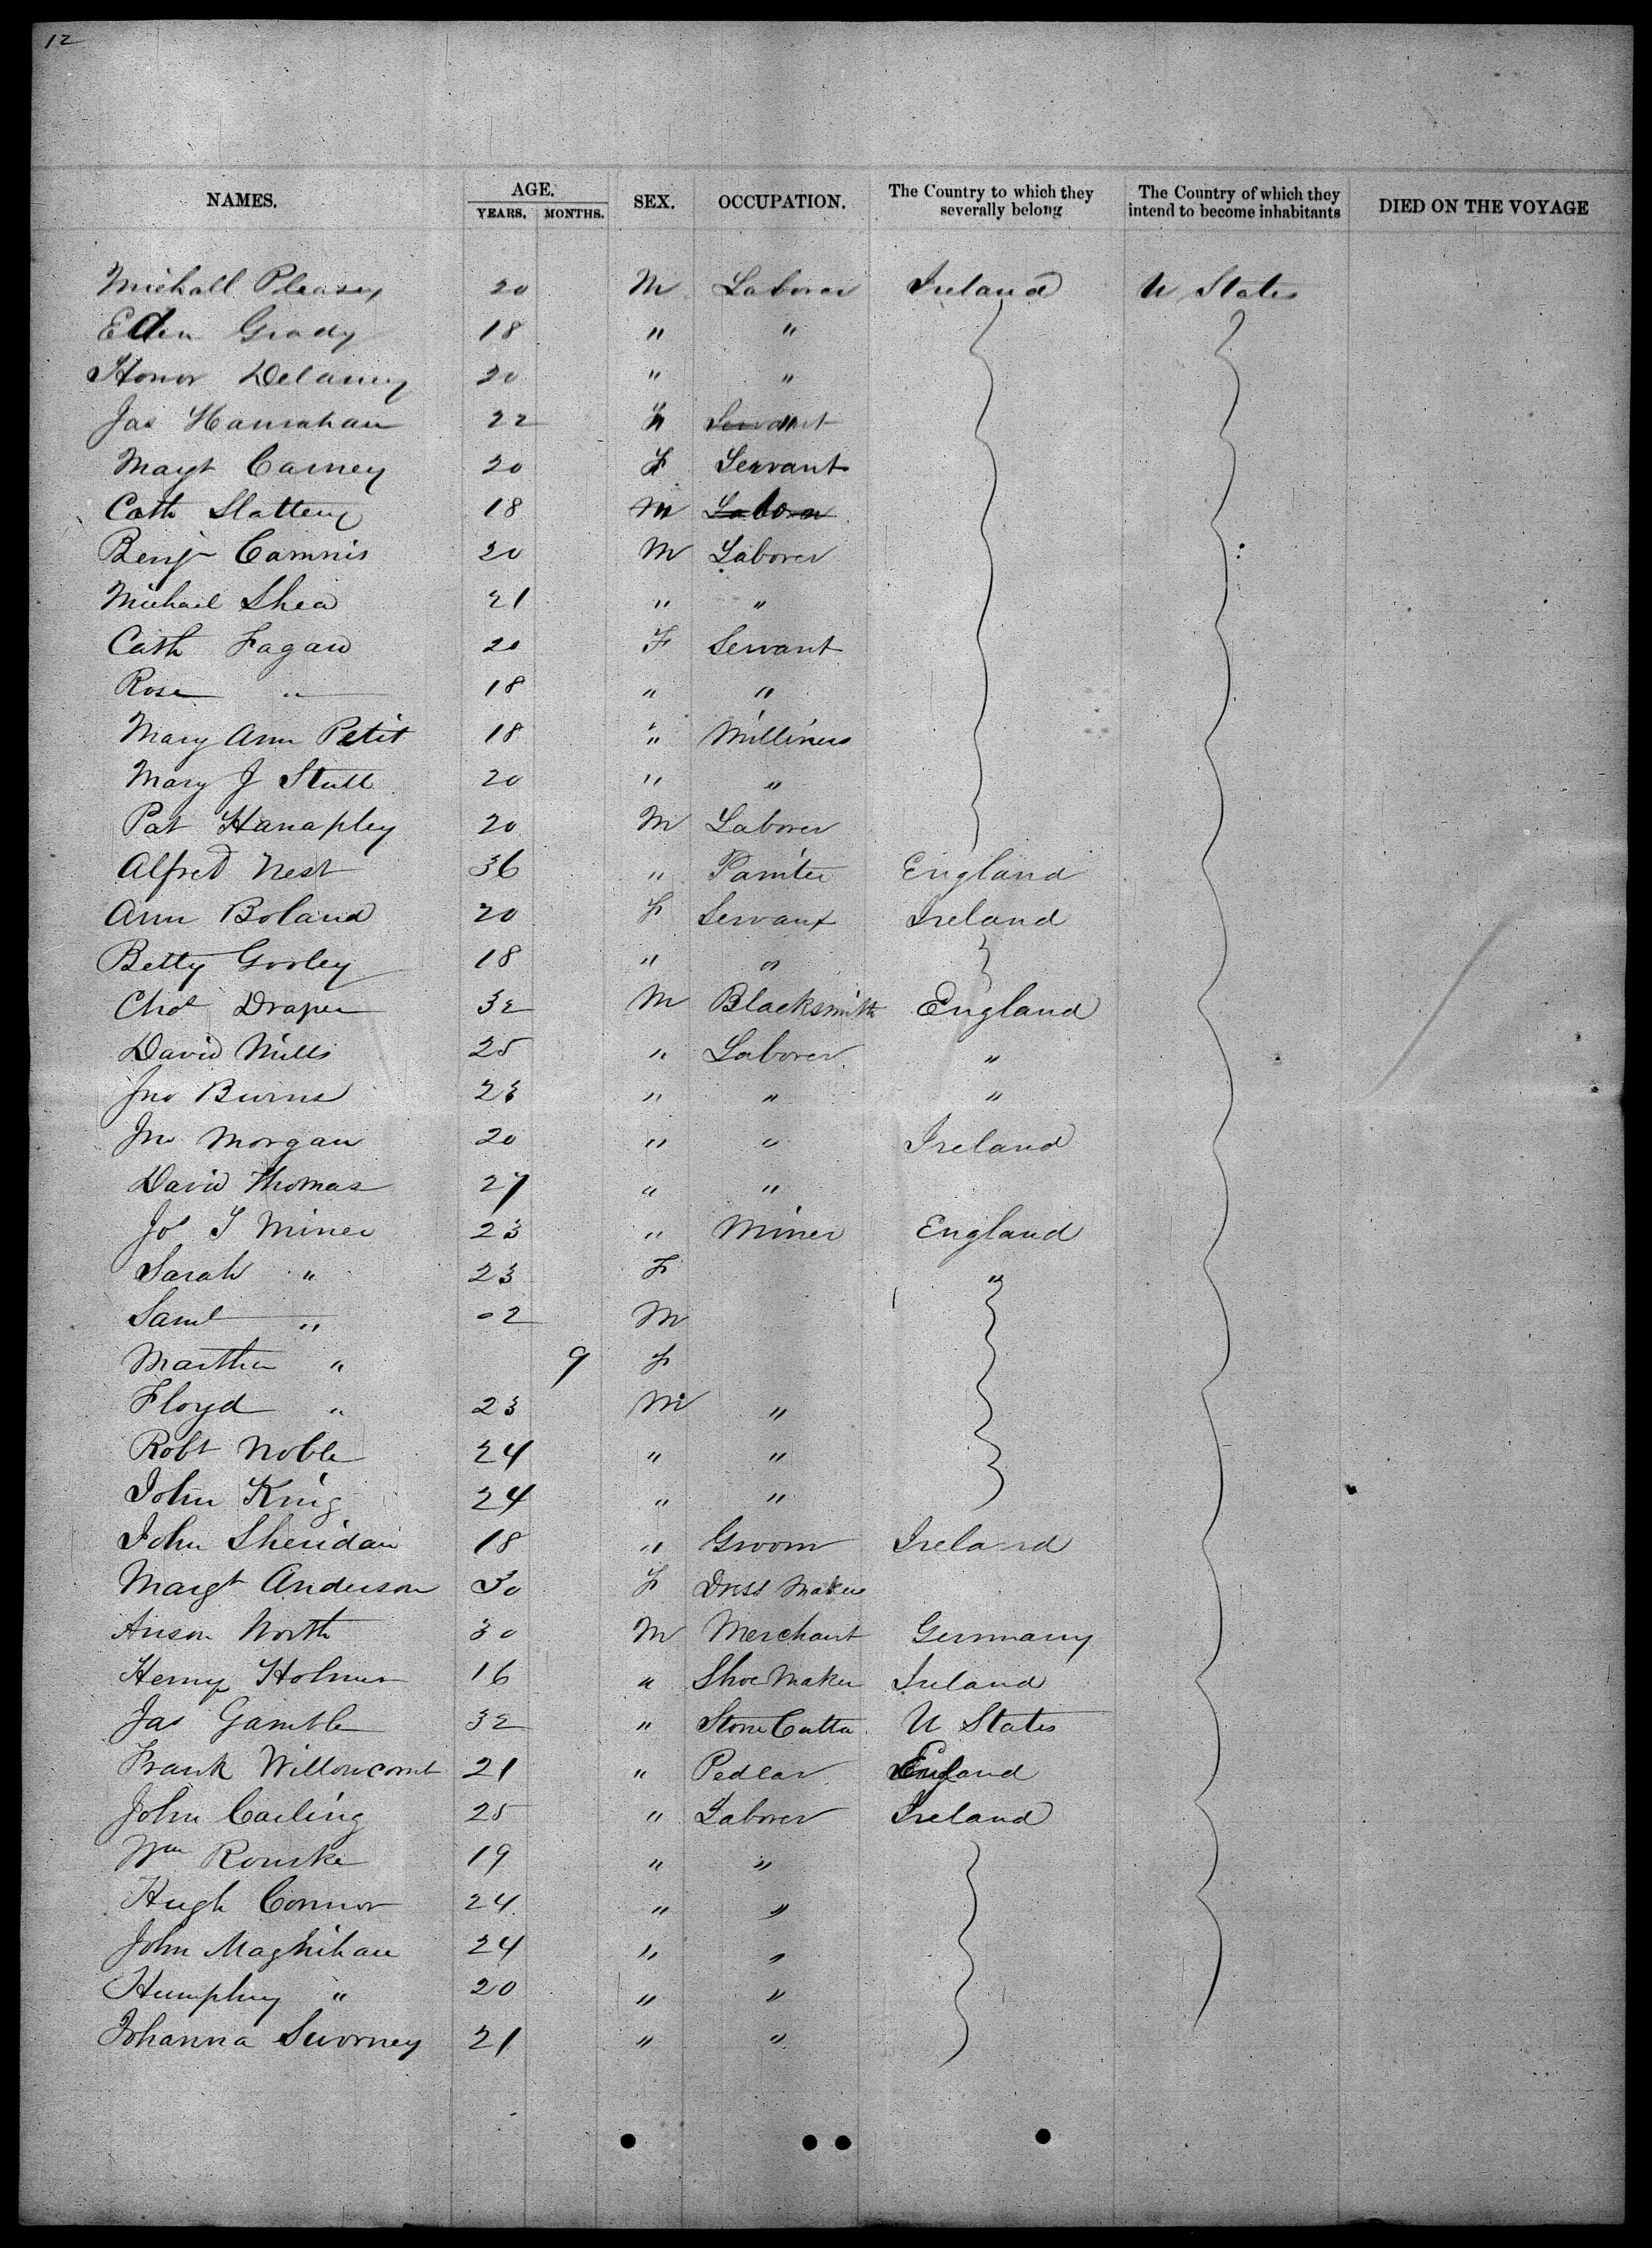 12
NAMES. AGE. SEX. OCCUPATION. The Country to which they severally belong The Country of which they intend to become inhabitants DIED ON THE VOYAGE
YEARS. MONTHS.
Michall Pleasey 20 M Laborer Ireland U States
Grady 18 " "
Honor Delaney 20 " "
Jas Hanrahan 22 Servant
Magt Carney 20 F Servant
Cath Slattery 18 M Laborer
Benj Camnis 20 M Laborer
Michael Shea 21 " "
Cath Fagan 20 F Servant
Rose " 18 " "
Mary Ann Petit 18 " Milliners
Mary J Stull 20 " "
Pat Hanapley 20 M Laborer
Alfred Nest 36 " Painter England
Ann Boland 20 F Servant Ireland
Betty Gorley 18 " "
Chas Draper 32 M Blacksmith England
David Mills 25 " Laborer "
Jno Burns 23 " " "
Jno Morgan 20 " " Ireland
David Thomas 27 " "
Jos T Miner 23 " Miner England
Sarah " 23 F "
Saml " 02 M
Martha " 9 F
Floyd " 23 M "
Robt Noble 24 " "
John King 24 " "
John Sheridan 18 " Groom Ireland
Margt Anderson 30 F Dress Maker
Anson North 30 M Merchant Germany
Henry Holmes 16 " Shoe Maker Ireland
Jas Gamble 32 " Stone Cutter U States
Frank Willowcomb 21 " Pedlar England
John Carling 25 " Laborer Ireland
Wm Rourke 19 " "
Hugh Connor 24 " "
John Maghihan 24 " "
Humphry " 20 " "
Johanna Suorney 21 " "